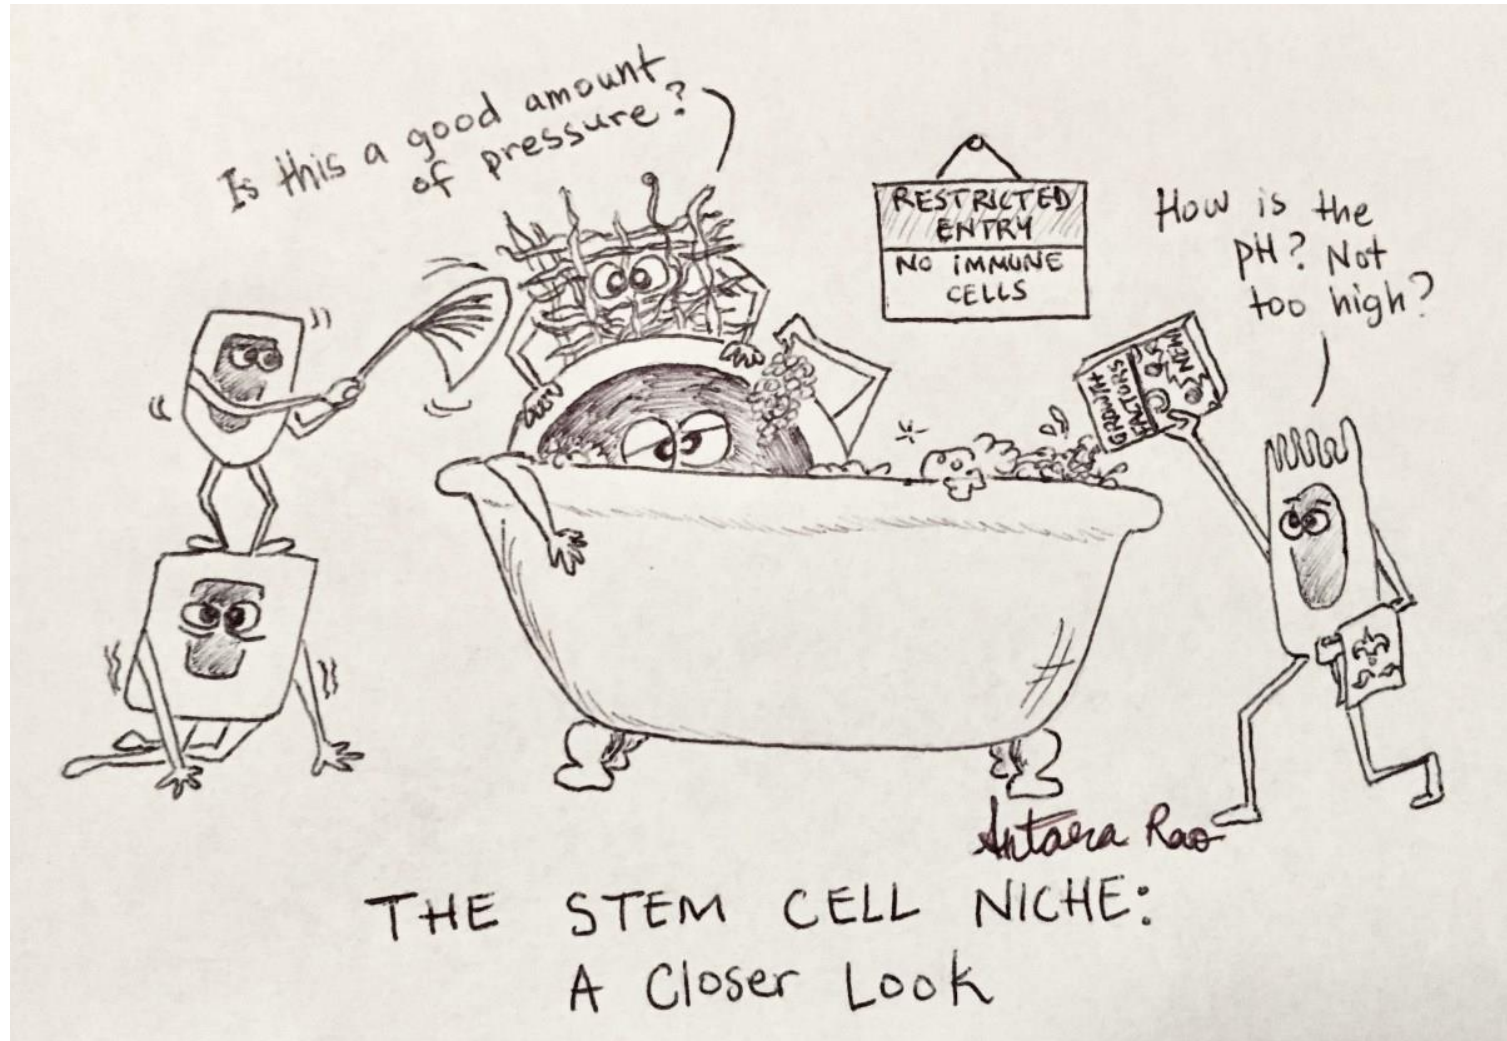 Is this a good amount
of pressure?
RESTRICTED
ENTRY
NO IMMUNE
CELLS
How is the
pH? Not
too high?
GROWTH
FACTORS
NEW
Antara Rao
THE STEM CELL NICHE:
A Closer Look